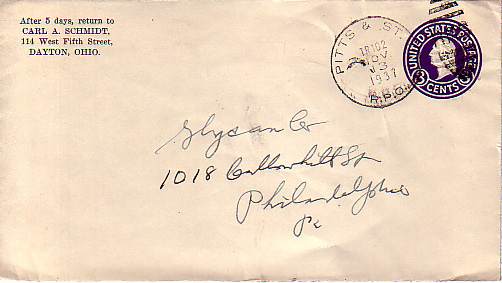 After 5 days, return to
CARL A. SCHMIDT,
114 West Fifth Street,
DAYTON, OHIO.
PITTS & ST.
TR 102
NOV
3
1937
R.P.O.
UNITED STATES POSTAGE
3 CENTS
Co
1018 Callowhill St
Philadelphia
Pa